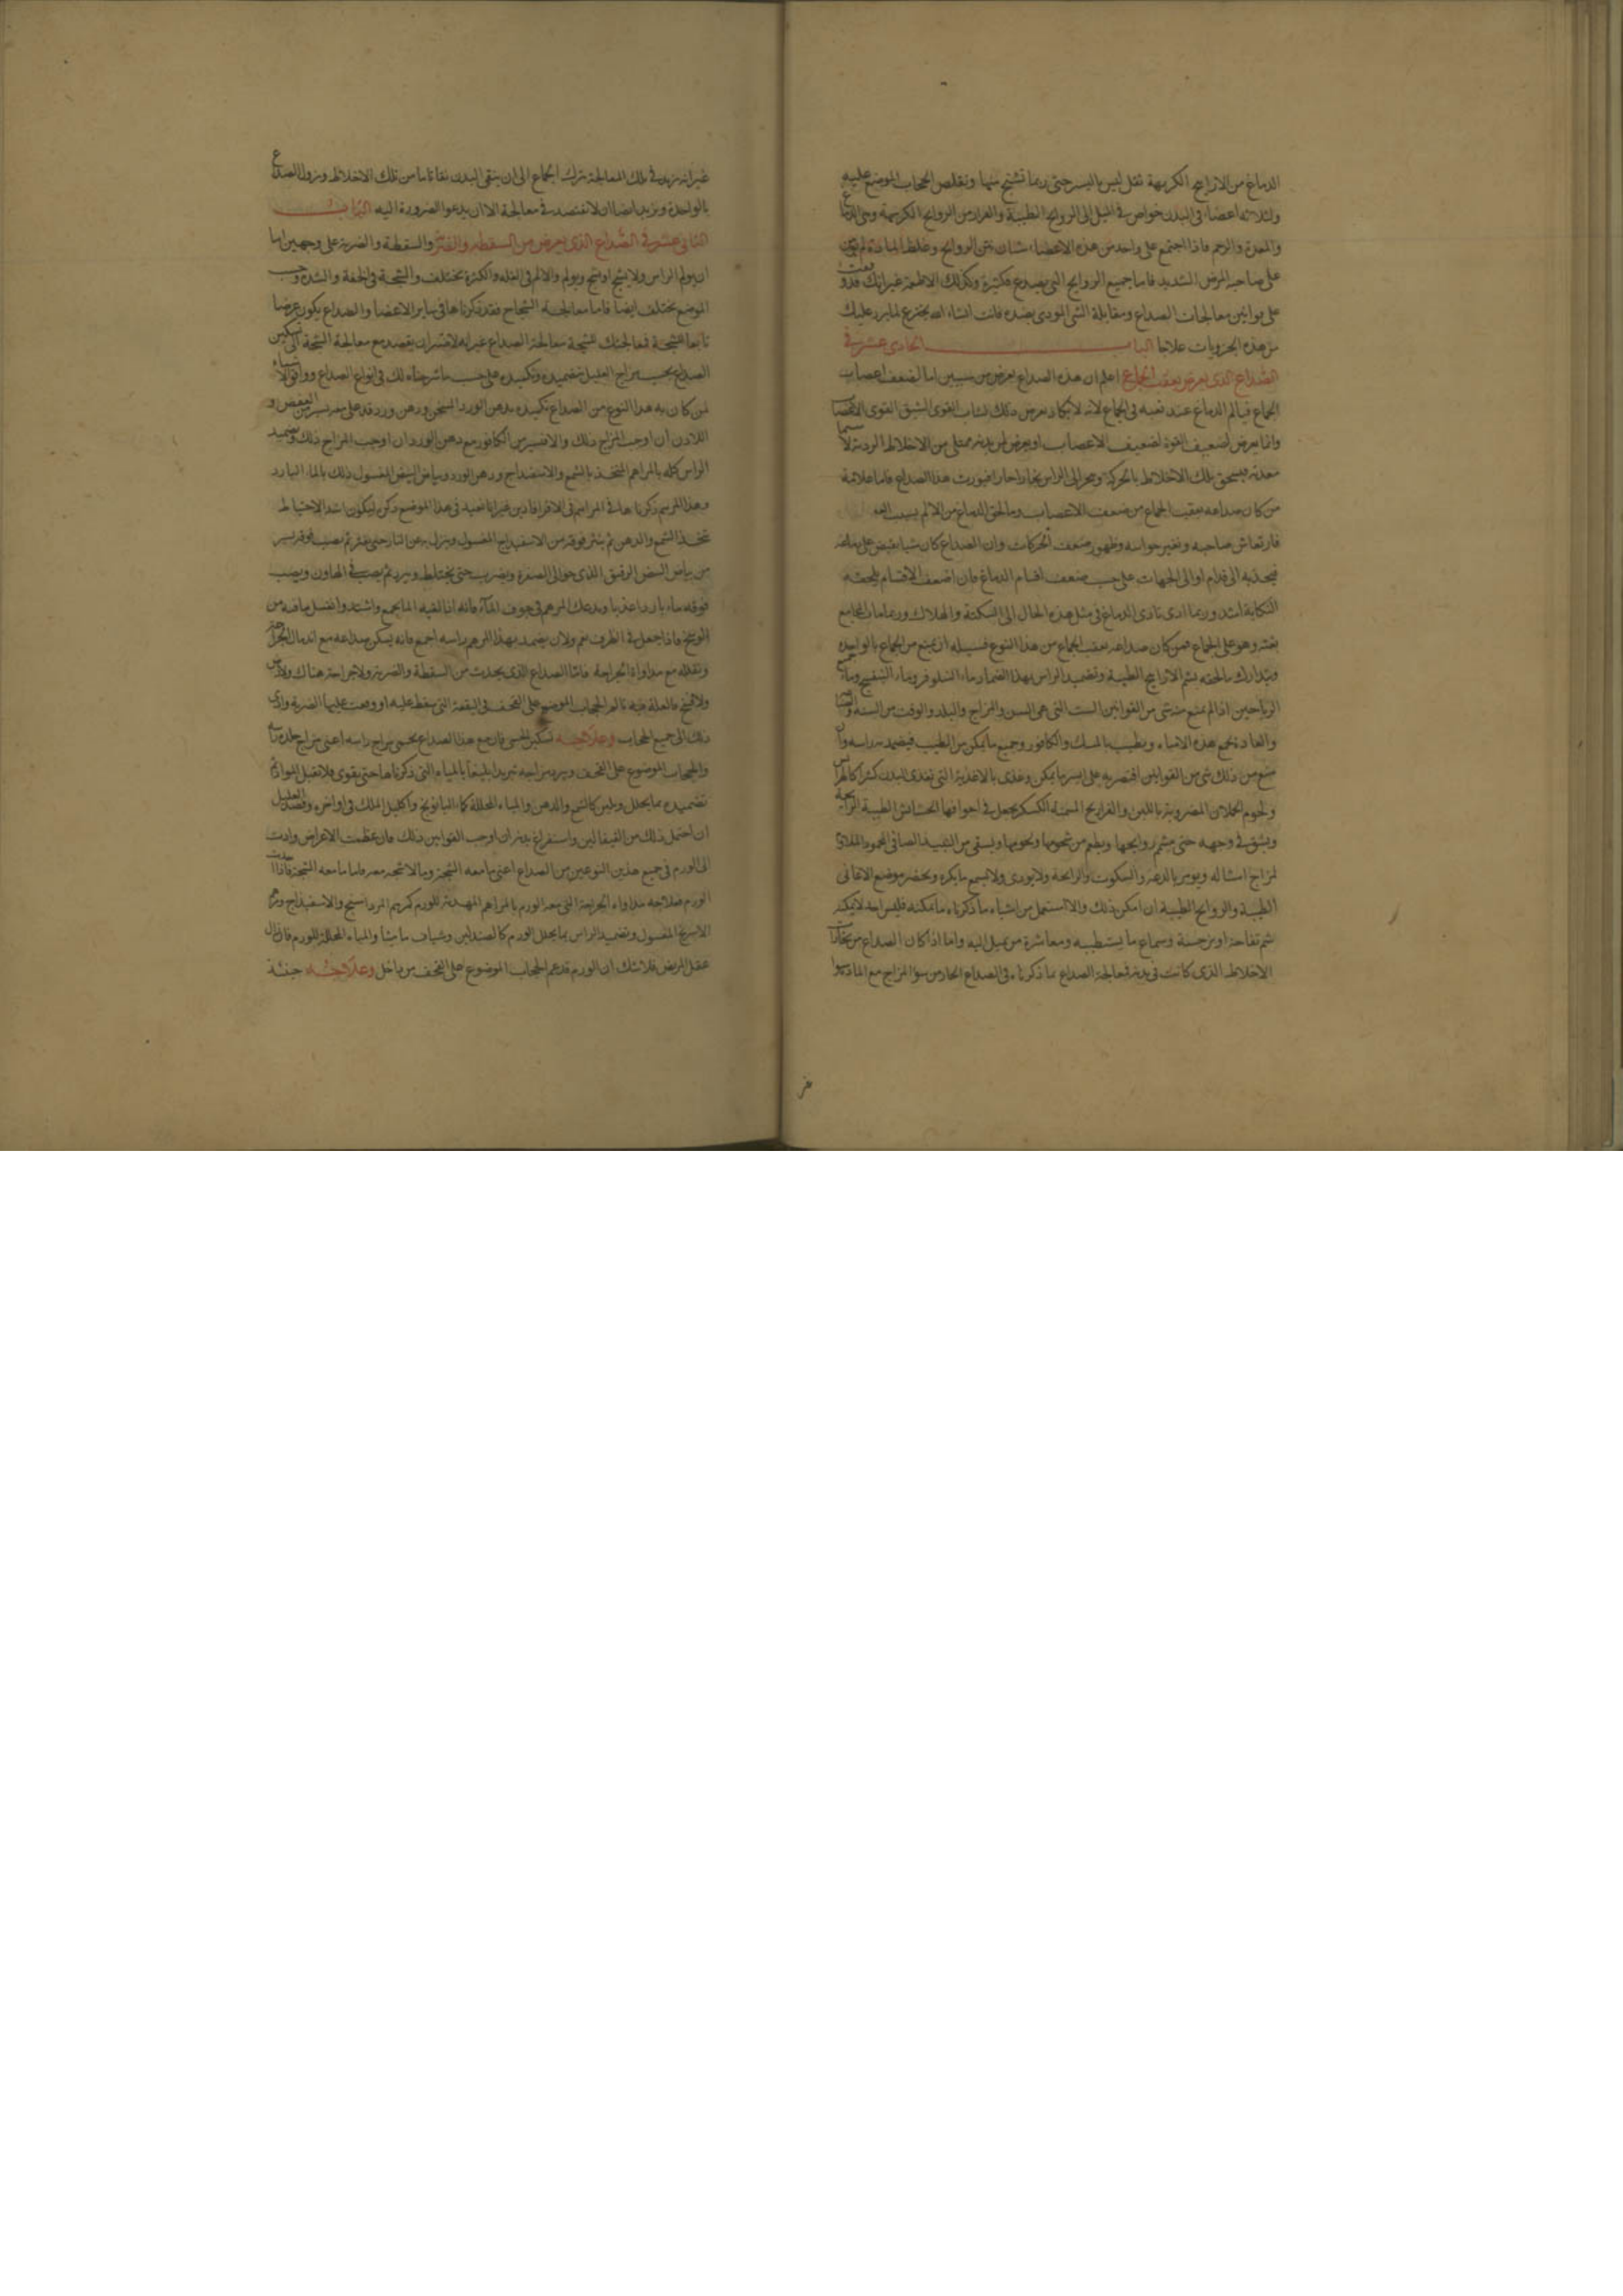 الدماغ من الاراييح الكريهة ثقل ليس باليسير حتى ربما تشنج منها وتقلص الحجاب الموضوع عليه
وثلاثة اعضاء في البدن خواص في الميل الى الروايح الطيبة والفرار من الروايح الكريهة وهي الدماغ
والمعدة والرحم فاذا اجتمع على واحد من هذه الاعضاء نتن الروايح وغلظ المادة لم يؤمن
على صاحبه المرض الشديد فاما جميع الروايح التي تصدع فكثيرة وكذلك الاطعمة غير انك قد وقفت
على قوانين معالجات الصداع ومقابلة الشي المودي بضده فانت انشاء الله تخترع لما يرد عليك
من هذه الجزويات علاجا الباب الحادي عشر في
الصداع الذي يعرض بعقب الجماع اعلم ان هذه الصداع يعرض من سببين اما لضعف اعصاب
الجماع فيالم الدماغ عند تعبه في الجماع لانه لا يكاد يعرض ذلك لشاب القوى الشبق القوى الاعضا
وانما يعرض لضعيف القوة لضعيف الاعصاب او يعرض لمن بدنه ممتلى من الاخلاط الردية لا سيما
معدته فيسحق تلك الاخلاط بالحركة ويجر الى الراس بخارا حارا فيورث هذا الصداع فاما علامة
من كان صداعه بعقب الجماع من ضعف الاعصاب وما لحق الدماغ من الالم بسبب العصب
فارتعاش صاحبه وتغير حواسه وظهور ضعف الحركات وان الصداع كان شيا يقبض على دماغه
فيجذبه الى قدام او الى الجهات على حسب ضعف اقسام الدماغ فان اضعف الاقسام يلحقه
النكاية اشد وربما ادى تاذى الدماغ في مثل هذه الحال الى السكتة والهلاك وربما مات المجامع
بغتة وهو على الجماع فمن كان صداعه بعقب الجماع من هذا النوع فسبيله ان يمنع من الجماع بالواحدة
ويتدارك ما لحقه بشم الاراييح الطيبة وتضميد الراس بهذا الضماد ماء النيلوفر وماء البنفسج وماء جميع
الرياحين اذا لم يمنع منه شي من القوانين الست التي هي السن والمزاج والبلد والوقت من السنة
والعادة يجمع هذه الاشياء ويطيب بالمسك والكافور وجميع ما يمكن من الطيب فيضمد به راسه وان
منع من ذلك شي من القوانين اقتصر به على ايسر ما يمكن وغذى بالاغذية التي تغذى البدن كثيرا كالهرايس
ولحوم الحملان المضروبة باللبن والفراريج المسمنة الكسكر يجعل في اجوافها الحشائش الطيبة الرايحة
ويشق في وجهه حتى يشم روايحها ويطعم من شحومها ولحومها ويسقى من النبيذ الصافي المحمود الملاى
لمزاج امثاله ويومر بالدعة والسكوت والراحة ولا يوذى ولا يسمع ما يكره ويحضر موضع الاغاني
الطيبة والروايح الطيبة ان امكن ذلك والا استعمل من اشياء ما ذكرناه ما امكنه فليس احد لا يمكنه
شم تفاحة او نرجسة وسماع ما يستطيبه ومعاشرة من يميل اليه واما اذا كان الصداع من بخارات
الاخلاط الذي كانت في بدنه فمعالجة الصداع بما ذكرناه في الصداع الحادث من سوء المزاج مع المادة سوا
غير انه يزيد في تلك المعالجة بترك الجماع الى ان ينقى البدن نقاء تاما من تلك الاخلاط ويزول الصداع
بالواحدة ويزيد ايضا ان لا تقتصد في معالجة الا ان يدعوا الضرورة اليه الباب
الثاني عشر في الصداع الذي يعرض من السقطة والضربة والسقطة والضربة على وجهين اما
ان يولم الراس ولا يشج او يشج ويولم والالم في القلة والكثرة يختلف والشجة في الخفة والشدة وحسب
الموضع يختلف ايضا فاما معالجة الشجاج فقد ذكرناها في ساير الاعضا والصداع يكون عرضا
تابعا للشجة فمعالجتك للشجة معالجة الصداع غير انه لا بد من ان يقصد مع معالجة الشجة الى تسكين
الصداع بحسب مزاج العليل بتضميده وتكميده على حسب ما شرحناه لك في انواع الصداع ووافق الاشياء
لمن كان به هذا النوع من الصداع تكميده بدهن الورد المسخن ودهن ورد قد على معه يسير من العفص و
اللادن ان اوجب المزاج ذلك والا فيسير من الكافور مع دهن الورد ان اوجب المزاج ذلك وتضميد
الراس كله بالمراهم المتخذ بالشمع والاسفيداج ودهن الورد وبياض البيض المغسول ذلك بالماء البارد
وهذا المرهم ذكرناها في المراهم في الاقراباذين غير انا نعيده في هذا الموضع ذكره ليكون اشد الاحتياط
يتخذ الشمع والدهن ثم ينثر فوقه من الاسفيداج المغسول وينزل به عن النار حتى يفتر ثم يصب فوقه يسير
من بياض البيض الرقيق الذي حوالي الصفرة ويضرب حتى يختلط ويبرد ثم يصب في الهاون ويصب
فوقه ماء بارد اعذبا ويدعك المرهم في جوف الماء فانه اذا لقيه الماء جمع واشتد وانغسل ما فيه من
الوسخ فاذا جعل في الطرف نعم ولان يضمد بهذا المرهم راسه اجمع فانه يسكن صداعه مع اندمال الجراحة
وتفقده مع مداواة الجراحة فاما الصداع الذي يحدث من السقطة والضربة ولا جراحة هناك ولا رض
ولا فسخ فالعلة فيه تالم الحجاب الموضوع على القحف في البقعة التي سقط عليه او وقعت عليها الضربة وادى
ذلك الى جميع الحجاب وعلاجه تسكين الحس فان مع هذا الصداع يحمى مزاج راسه اعنى مزاج جلد راسه
والحجاب الموضوع على القحف ويبرد مزاجه تبريدا بليغا بالمياه التي ذكرناها حتى يقوى فلا تقبل المواد ثم
تضميده بما يحلل ويلين كالشمع والدهن والمياه المحللة كماء البابونج واكليل الملك في اواخره وفصد العليل
ان احتمل ذلك من القيفالين واستفراغ بدنه ان اوجب القوانين ذلك فان عظمت الاعراض وادت
الى الورم في جميع هذين النوعين من الصداع اعنى ما معه الشجة وما لا شجة معه فاما ما معه الشجة فاذا حدث
الورم فعلاجه مداواة الجراحة التي معه الورم بالمراهم المهدية للورم كمرهم المرداسنج والاسفيذاج ومرهم
الاسرنج المغسول وتضميد الراس بما يحلل الورم كالصندلين وشياف ماميثا والمياه المحللة للورم فان زال
عقل المريض فلا تشك ان الورم قد عم الحجاب الموضوع على القحف من داخل وعلاجه حينئذ